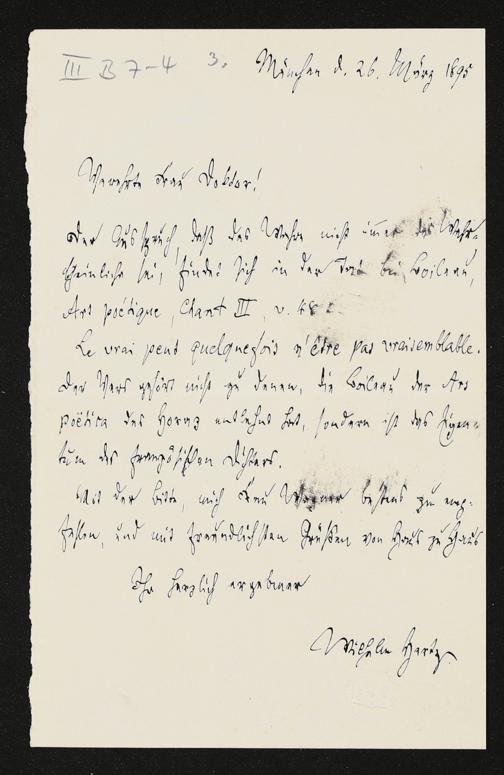 III B 7-4 3. München d. 26. März 1895
Verehrte Frau Doktor!
Der Ausspruch, daß das Wahre nicht immer das Wahr-
scheinliche sei, findet sich in der Tat bei Boileau,
Art poétique, Chant III, v. 48:
Le vrai peut quelquefois n'être pas vraisemblable.
Der Vers gehört nicht zu denen, die Boileau der Ars
poëtica des Horaz entlehnt hat, sondern ist das Eigen-
tum des französischen Dichters.
Mit der Bitte, mich Frau Wagner bestens zu emp-
fehlen, und mit freundlichsten Grüßen von Haus zu Haus
Ihr herzlich ergebener
Wilhelm Hertz.